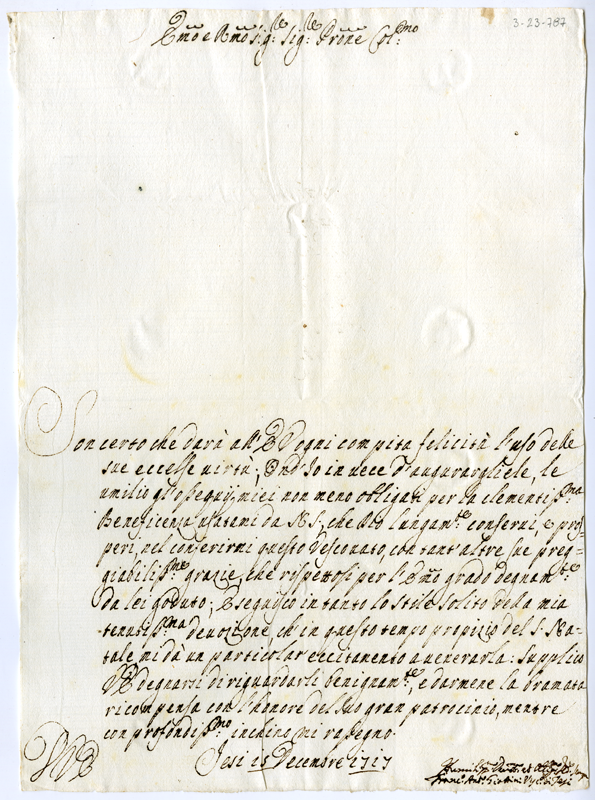 3-23-787
Emo e Rmo Sig.re Sig.re Prone Col.mo
Son certo che darà all' E V ogni compita felicità l'uso delle
sue eccelse virtù; Ond' Io in vece d'augurargliele, le
umilio gl'ossequij miei non meno obligati per la clementiss.ma
Beneficenza usatami da N S, che Dio lungam.te conservi, e pros=
peri, nel conferirmi questo Vesconato, con tant'altre sue preg=
giabiliss.me grazie, che rispettosi per l' Emo grado degnam.te
da lei goduto; Eseguisco intanto lo stile solito della mia
tenutiss.ma devozione, ch'in questo tempo propizio del S. Na=
tale mi dà un particolar eccitamento a venerarla: supplico
V E degnarsi di riguardarli benignam.te, e darmene la bramata
ricompensa con l'honore del suo gran patrocinio, mentre
con profondiss.mo inchino mi rasegno.
Jesi 15 Decembre 1717
V E